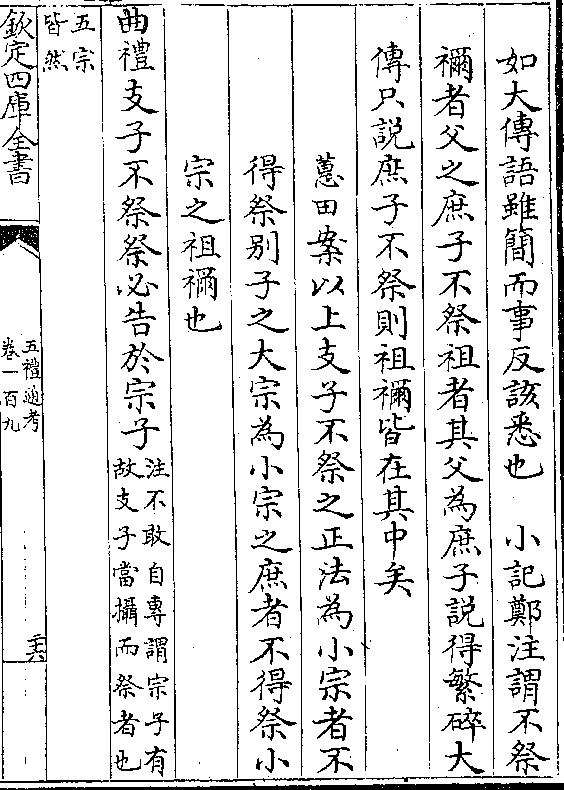 如大傳語雖簡而事反該悉也　小記鄭注謂不祭
禰者父之庶子不祭祖者其父為庶子説得繁碎大
傳只説庶子不祭則祖禰皆在其中矣
蕙田案以上支子不祭之正法為小宗者不
得祭别子之大宗為小宗之庶者不得祭小
宗之祖禰也
曲禮支子不祭祭必告於宗子
注不敢自專謂宗子有
故支子當攝而祭者也
五宗
皆然
欽定四庫全書
五禮通考
卷一百九
二六